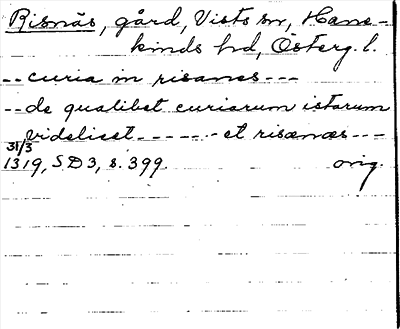 Risnäs, gård, Vists sn, Hane-
kinds hd, Österg. l.
-- curia in risanes ---
-- de qualibet curiarum istarum
videlicet ------ et risænæs ---
31/3
1319, SD3, s. 399. orig.